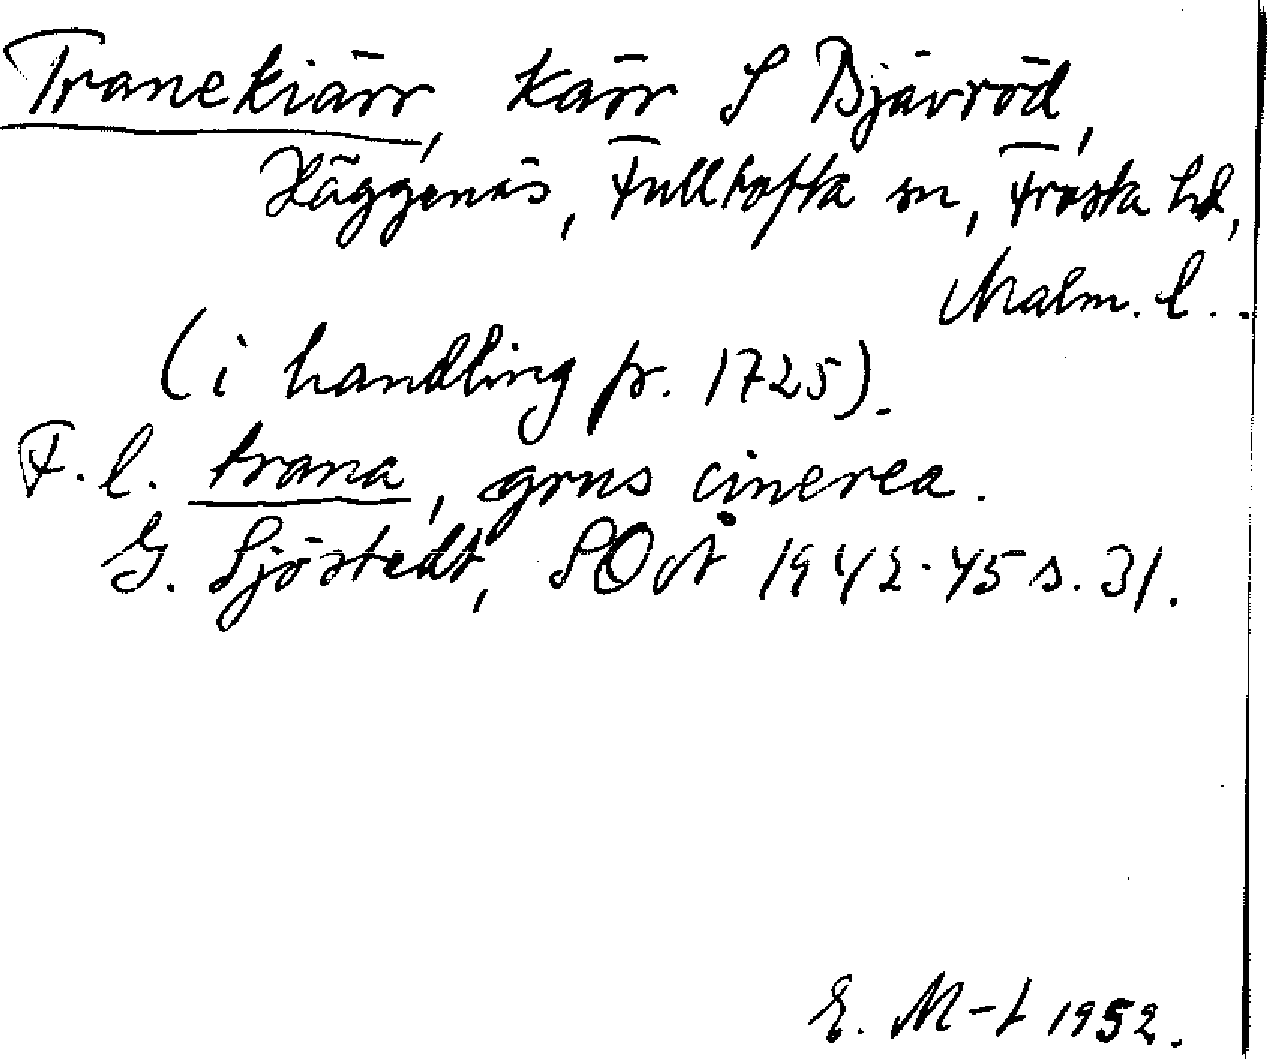 Tranekiärr, Kärr S Bjävröd,
Häggenäs, Fulltofta sn, Frosta hd,
Malm. l..
(i handling fr. 1725).
F. l. trana, grus cinerea.
G. Sjöstedt, SOÅ 1942-45 s. 31.
E. M-t 1952.